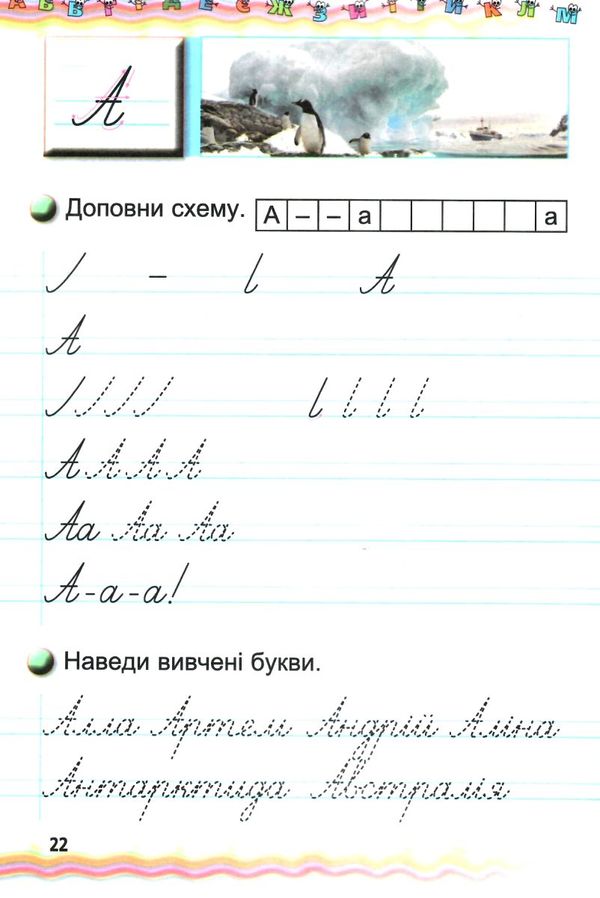 А Б В Г Ґ Д Е Є Ж З И І Ї Й К Л М
А
Доповни схему. А – – а а
– А
А
А А А А
Аа Аа Аа
А-а-а!
Наведи вивчені букви.
Алла Артем Андрій Аліна
Антарктида Австралія
22